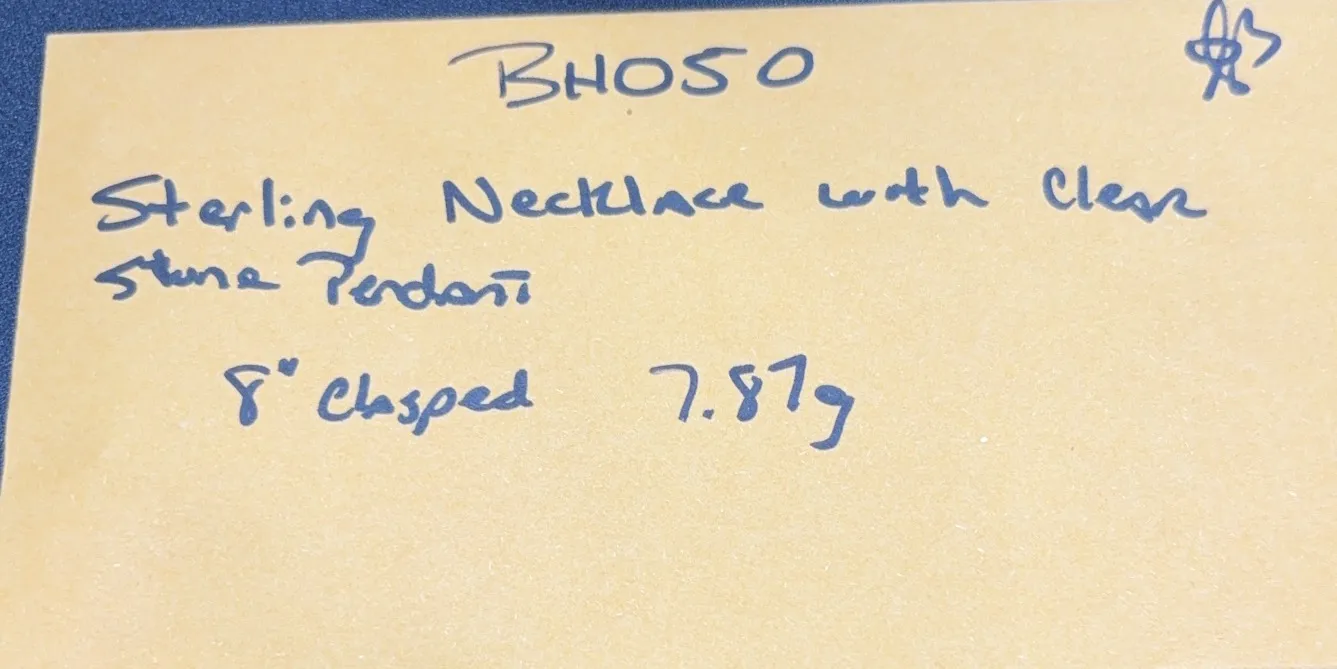 BH050
Sterling Necklace with Clear
Stone Pendant
8" Clasped 7.87g